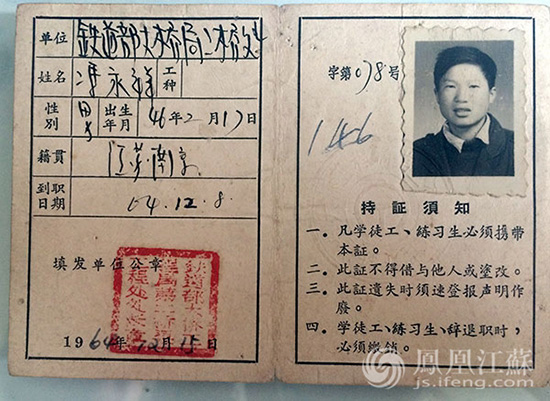 单位 铁道部大桥局二桥处
姓名 冯永祥 工种
性别 男 出生年月 46年2月17日
籍贯 江苏南京
到职日期 64.12.8.
填发单位公章
1964年12月15日
字第078号
146
持証須知
一. 凡学徒工、练习生必须携带
本証。
二. 此証不得借与他人或塗改。
三. 此証遗失时须速登报声明作
廢。
四. 学徒工、练习生、辞退职时，
必须缴銷。
鳳凰江蘇
js.ifeng.com